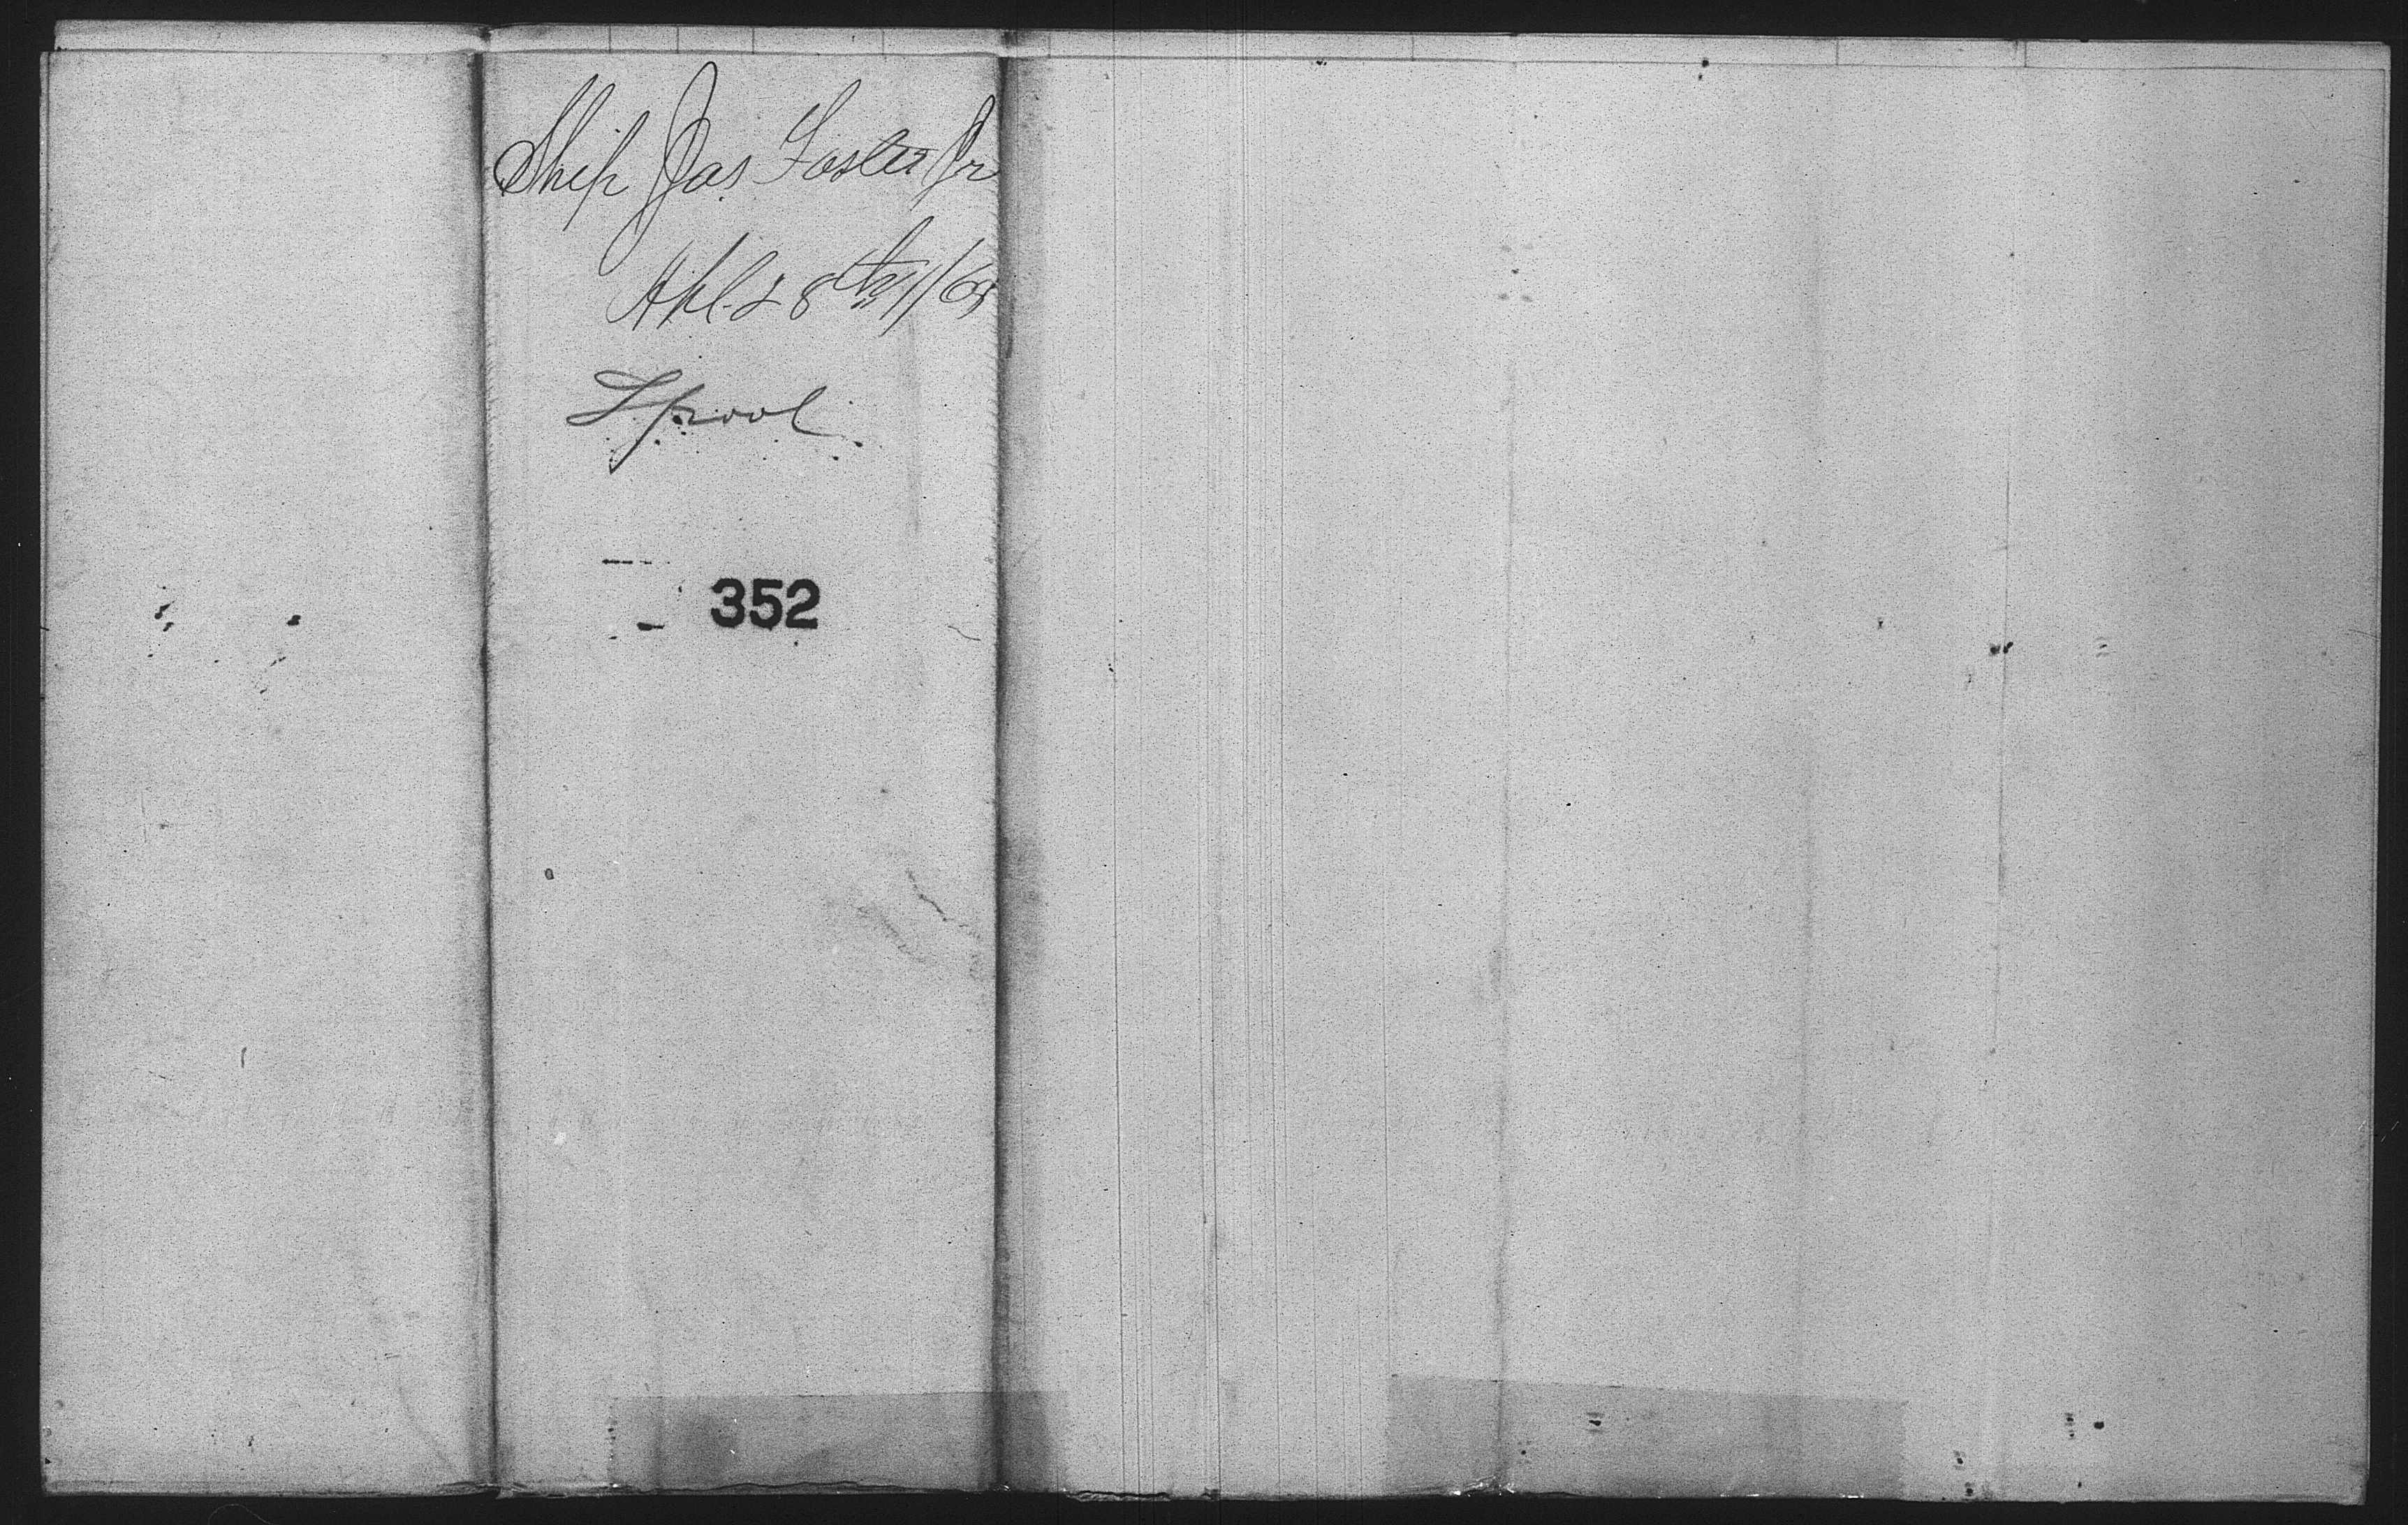 Ship Jas Foster Jr
Apl. 28th /65
Lpool
352